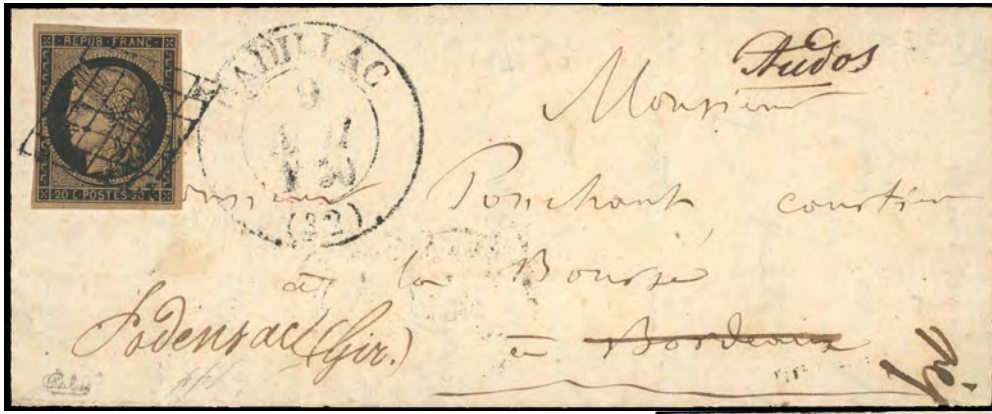 REPUB·FRANC
20 C POSTES 20 C
CADILLAC
9
(32)
Audos
Monsieur
Monsieur Ponchant courtier
à la Bourse
à Bordeaux
Podensac (Gir.)